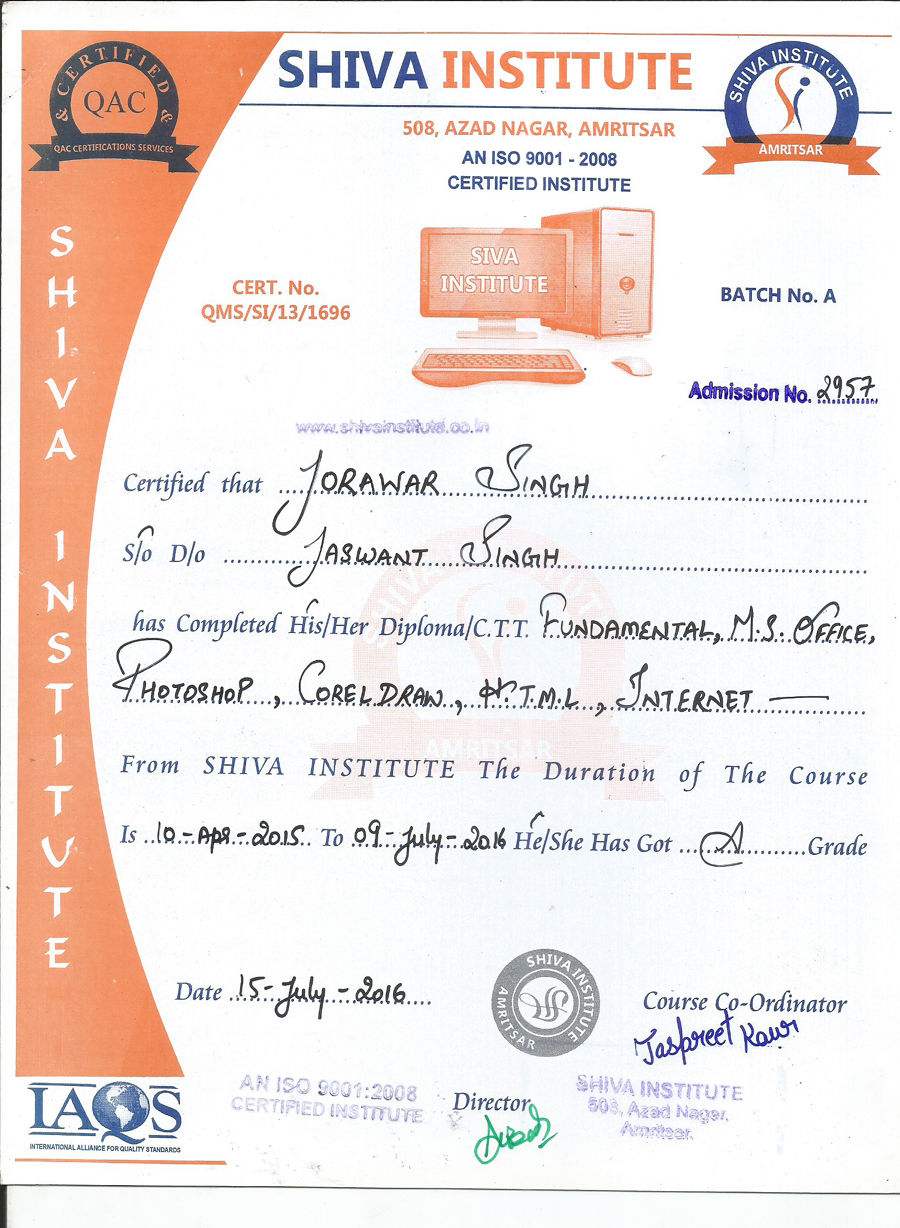 & CERTIFIED &
QAC
QAC CERTIFICATIONS SERVICES
SHIVA INSTITUTE
SHIVA INSTITUTE
AMRITSAR
508, AZAD NAGAR, AMRITSAR
AN ISO 9001 - 2008
CERTIFIED INSTITUTE
SHIVA INSTITUTE
SIVA
INSTITUTE
CERT. No.
QMS/SI/13/1696
BATCH No. A
Admission No. 2957
www.shivainstitute.co.in
Certified that JORAWAR SINGH
S/o D/o JASWANT SINGH
has Completed His/Her Diploma/C.T.T. FUNDAMENTAL, M.S. OFFICE,
PHOTOSHOP, COREL DRAW, H.T.M.L, INTERNET —
SHIVA INSTITUTE
AMRITSAR
From SHIVA INSTITUTE The Duration of The Course
Is 10-Apr-2015 To 09-July-2016 He/She Has Got A Grade
Date 15-July-2016
SHIVA INSTITUTE
AMRITSAR
Course Co-Ordinator
Jaspreet Kaur
IAQS
INTERNATIONAL ALLIANCE FOR QUALITY STANDARDS
AN ISO 9001:2008
CERTIFIED INSTITUTE
Director
SHIVA INSTITUTE
508, Azad Nagar,
Amritsar.